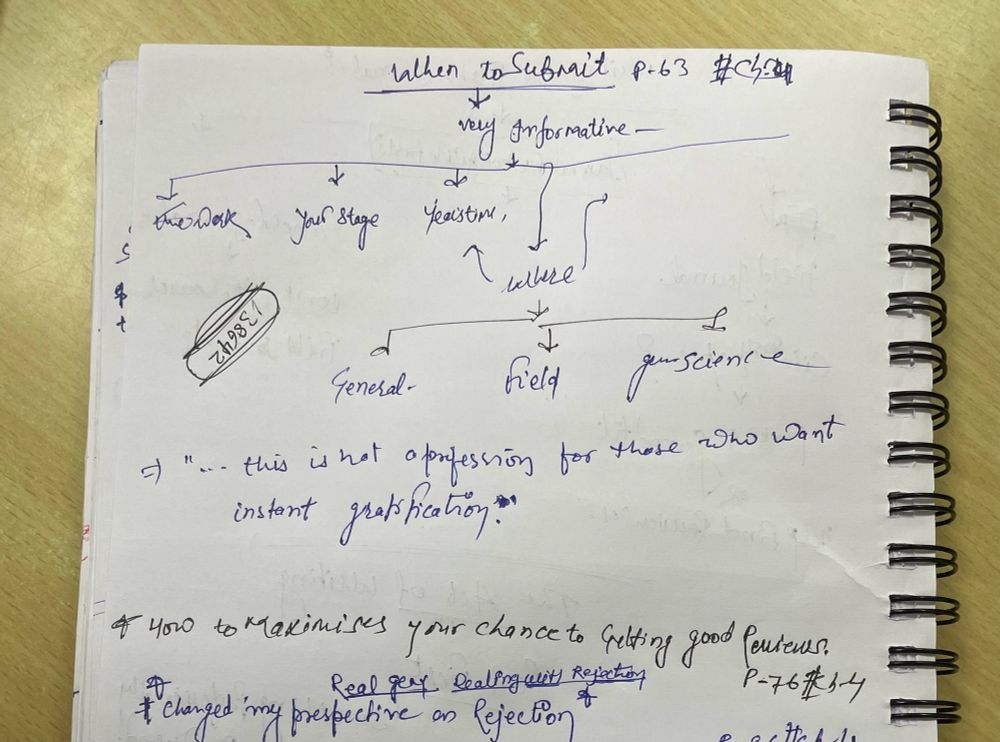 When to Submit P-63 #Ch-4
very Informative —
the work your stage
where
General- field science
138642
⇒ "... this is not a profession for those who want
instant gratification."
* How to Maximises your chance to Getting good Reviews.
Dealing with Rejection P-76 #Ch-4
* Changed my prespective on Rejection